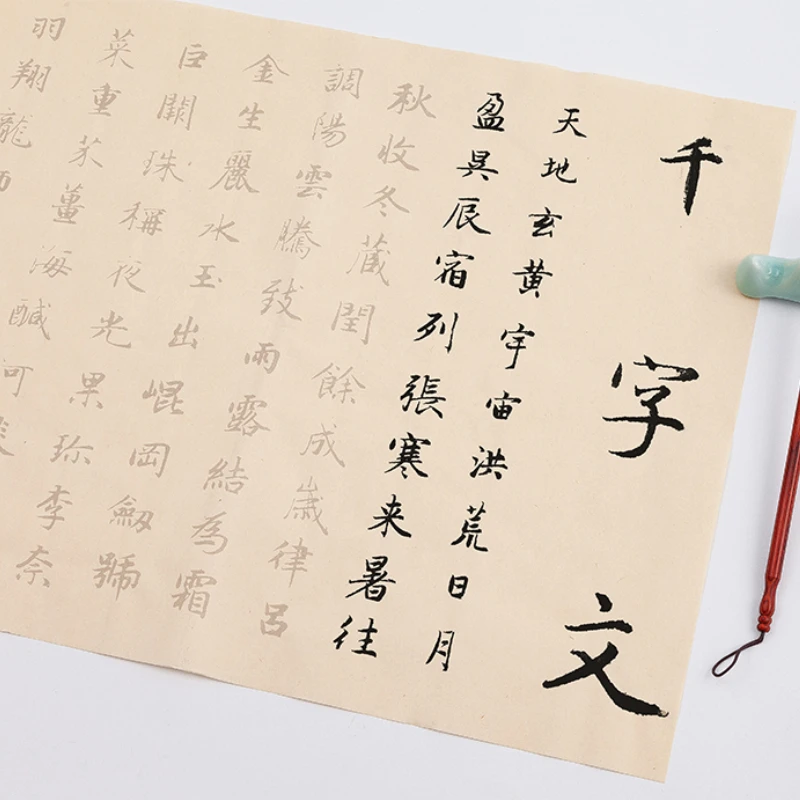 千字文
天地玄黄宇宙洪荒日月
盈昃辰宿列張寒来暑往
秋收冬蔵閏餘成歳律呂
調陽雲騰致雨露結為霜
金生麗水玉出崐岡劔號
巨闕珠稱夜光果珎李奈
菜重芥薑海鹹河
羽翔龍